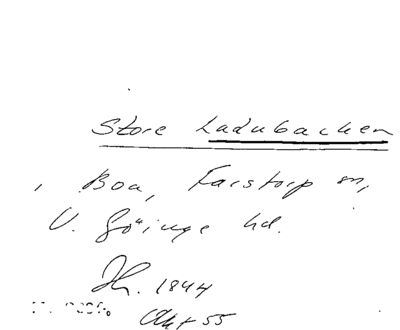 Store Ladubacken
, Boa, Farstorp sn,
V. Göinge hd.
Jh. 1844
Akt 55